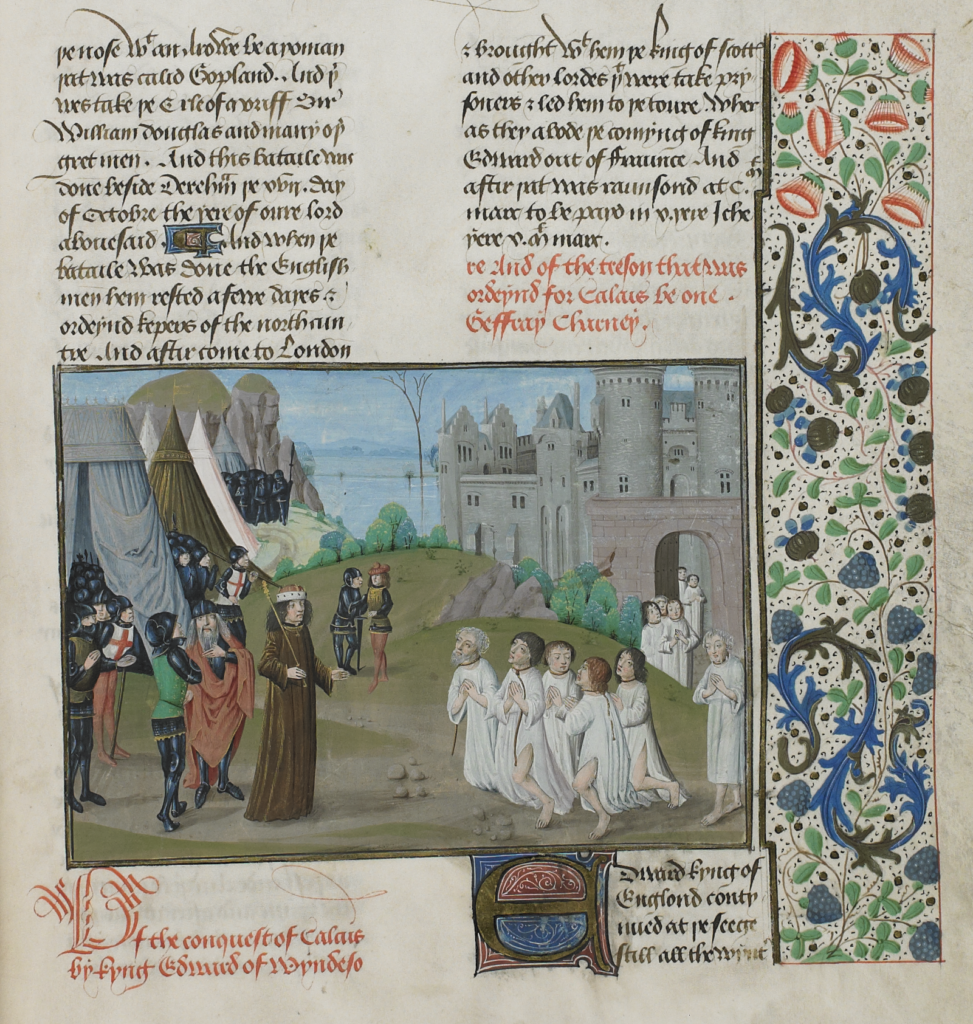 þe nose wt an arowe be a yoman
þat was calid Copland. And þ
wes take þe Erle of
William Douglas and many oþ
gret men. And this bataile was
done beside Derehm þe xvij. day
of Octobre the yere of oure lord
abouesaid. And when þe
bataile was done the English
men hem rested a fewe dayes &
ordeynd kepers of the north cun
tre. And aftir come to London
& brought wt hem þe king of scott
and othen lordes þt were take pry
soners & led hem to þe toure wher
as they abode þe comyng of king
Edward out of ffraunce And
aftir þat was raunsond at C. M
marc to be payd in v. yere Iche
yere v. M marc.
re And of the treson that was
ordeynd for Calais be one.
Geffray Charney.
Of the conquest of Calais
by kyng Edward of Wyndeso
Edward kyng of
Englond conty
nued at þe seege
still all the wynt